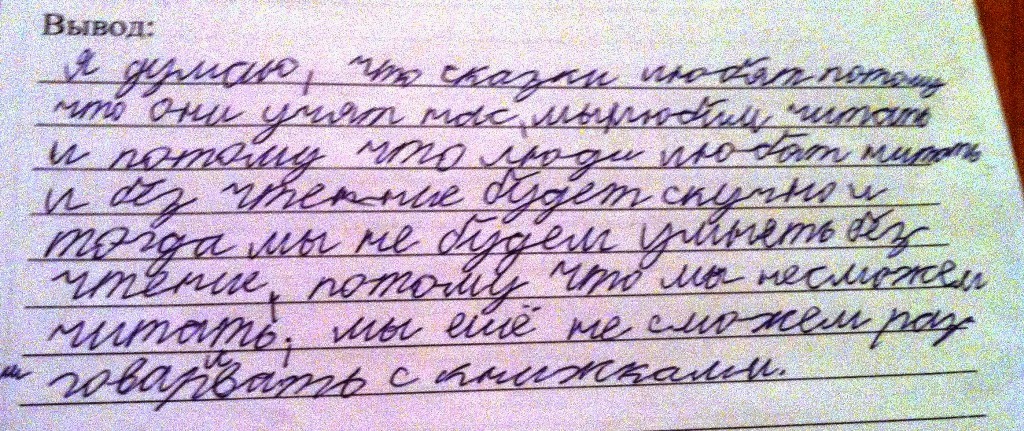 Вывод:
Я думаю, что сказки любят потому
что они учят нас, мы любим читать
и потому что люди любят читать
и без чтение будет скучно и
тогда мы не будем умнеть без
чтение, потому что мы несможем
читать, мы ешё не сможем раз
говаривать с книжками.